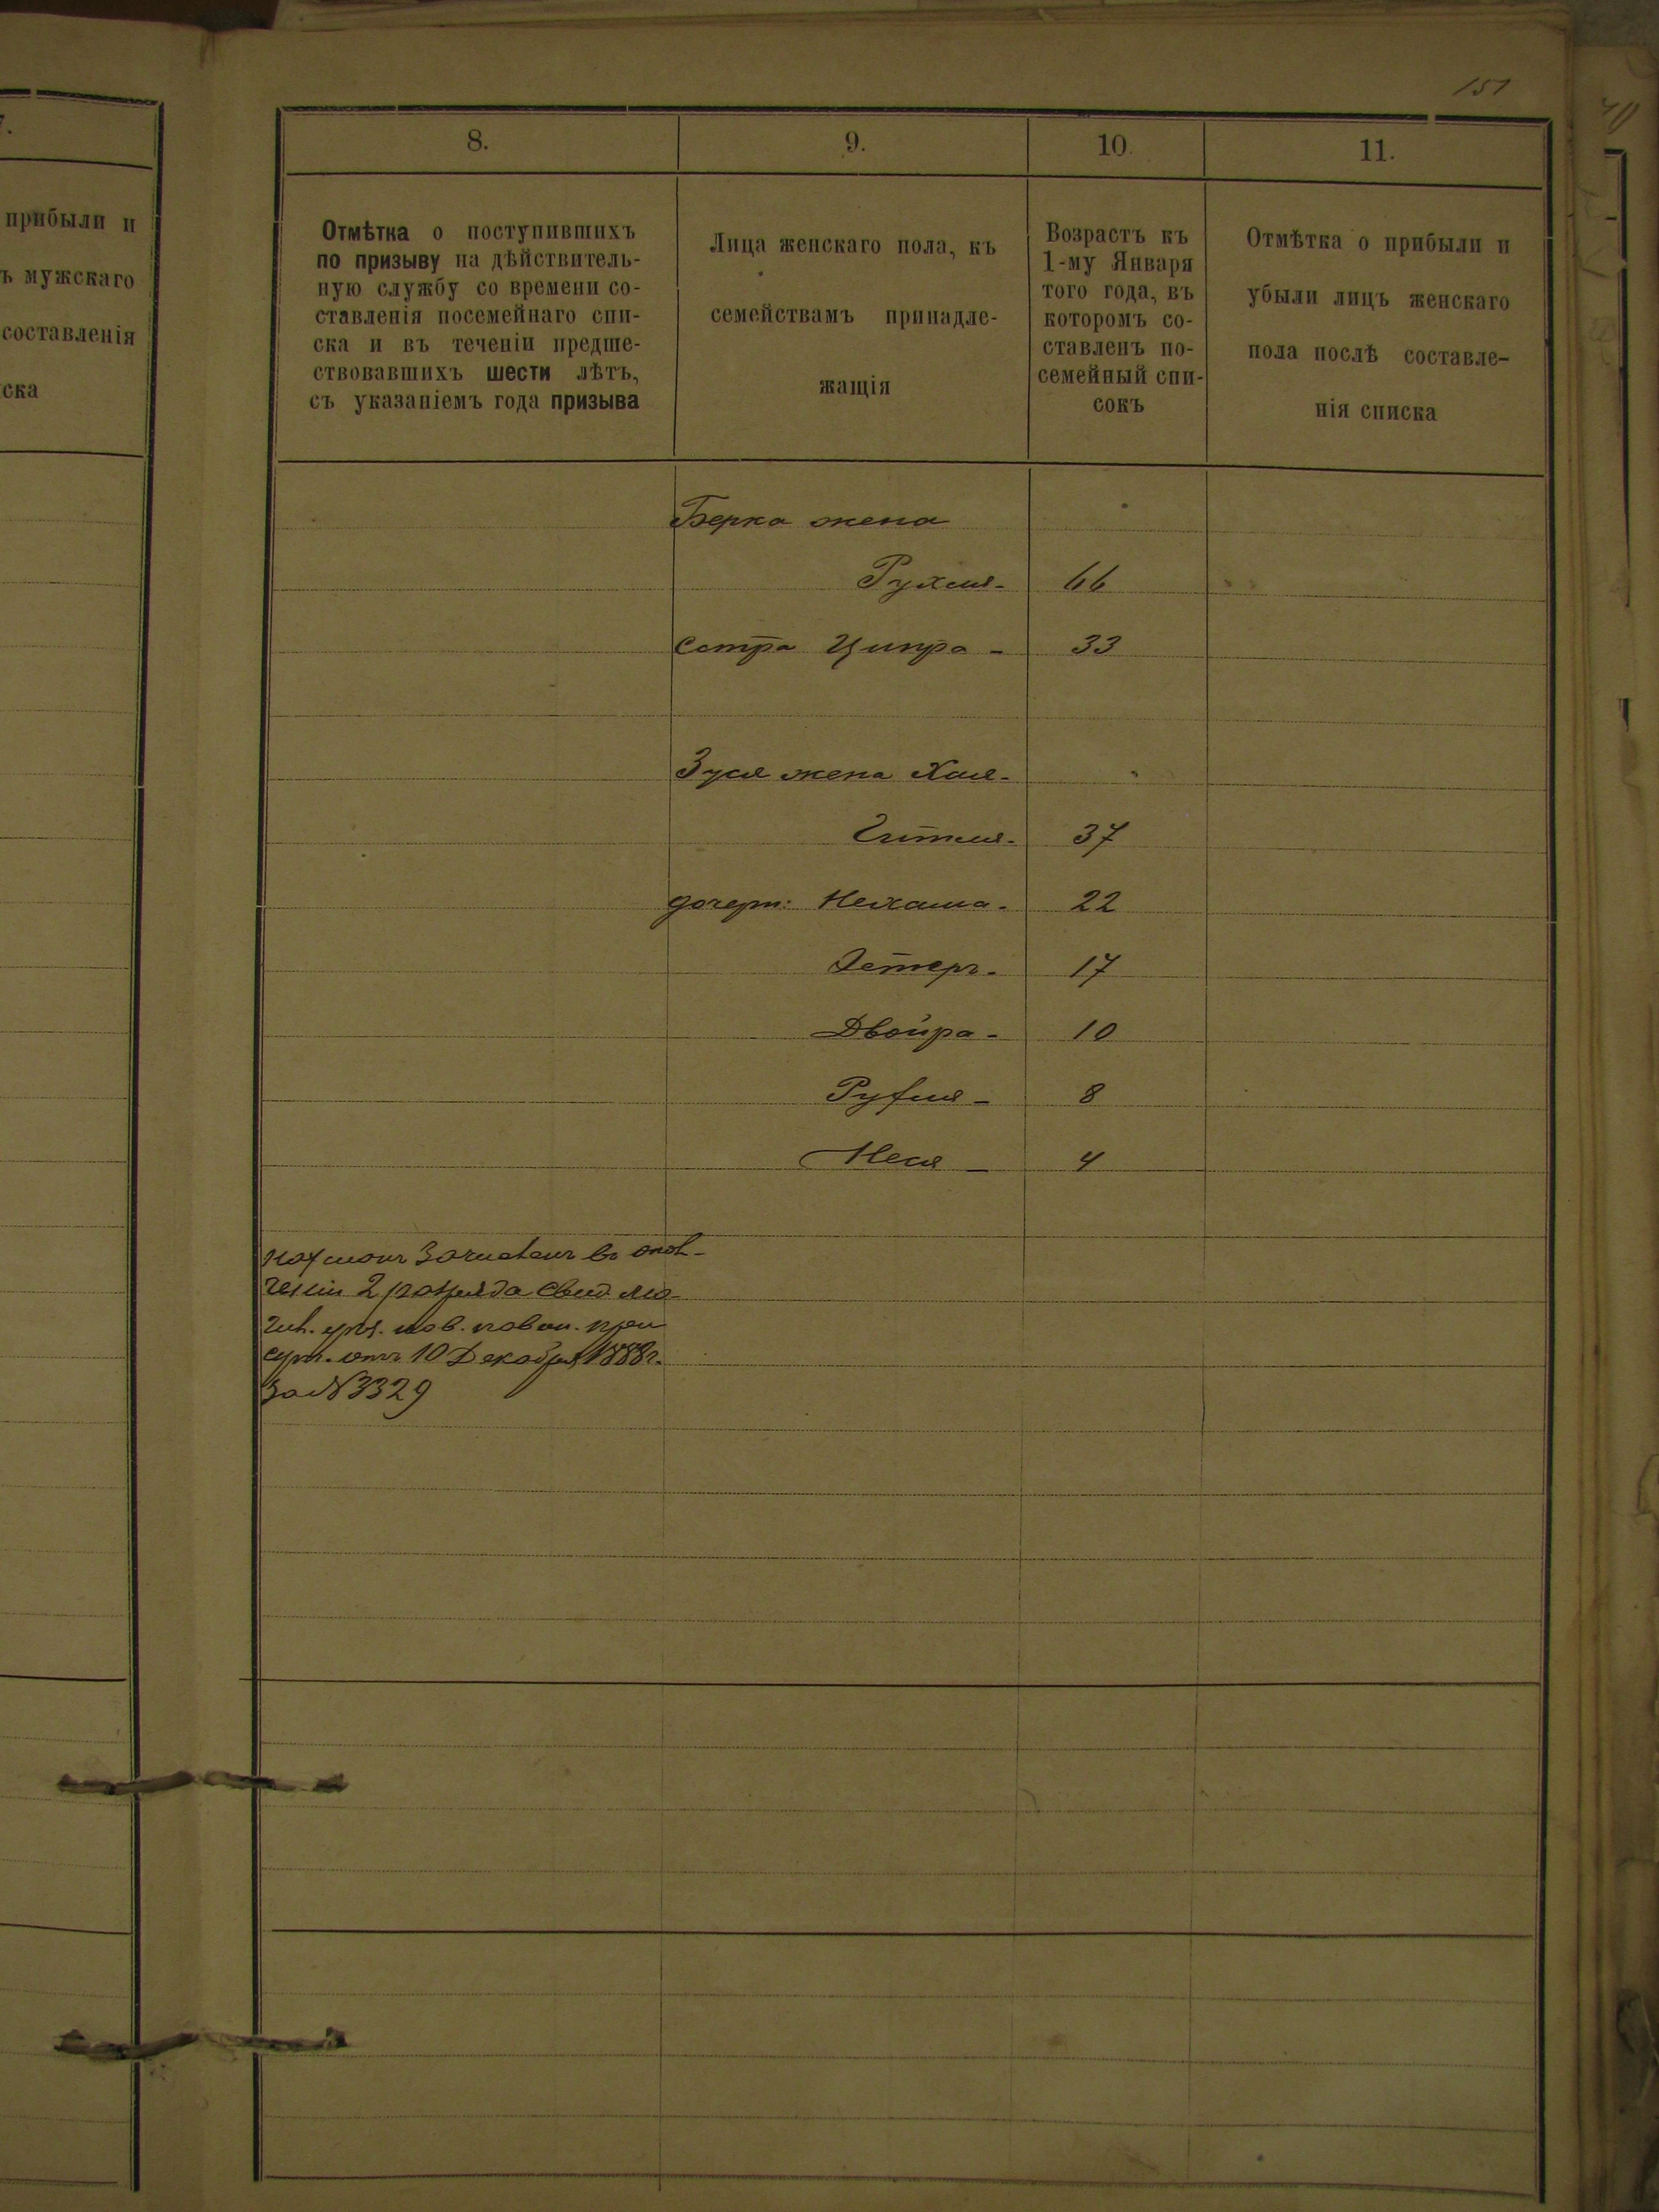 151
7.
прибыли и
ъ мужскаго
составленія
ска
8.
9.
10.
11.
Отмѣтка о поступившихъ
по призыву на дѣйствитель-
ную службу со времени со-
ставленія посемейнаго спи-
ска и въ теченіи предше-
ствовавшихъ шести лѣтъ,
съ указаніемъ года призыва
Лица женскаго пола, къ
семействамъ принадле-
жащія
Возрастъ къ
1-му Января
того года, въ
которомъ со-
ставленъ по-
семейный спи-
сокъ
Отмѣтка о прибыли и
убыли лицъ женскаго
пола послѣ составле-
нія списка
Берка жена
Рухля - 66
Сестра Ципра - 33
Зуся жена Хая-
Гитля - 37
дочери: Нехама - 22
Эстеръ - 17
Двойра - 10
Руфля - 8
Неся - 4
въ опол-
ченіи 2 разряда Свид.
отъ 10 Декабря 1888 г.
за № 3329